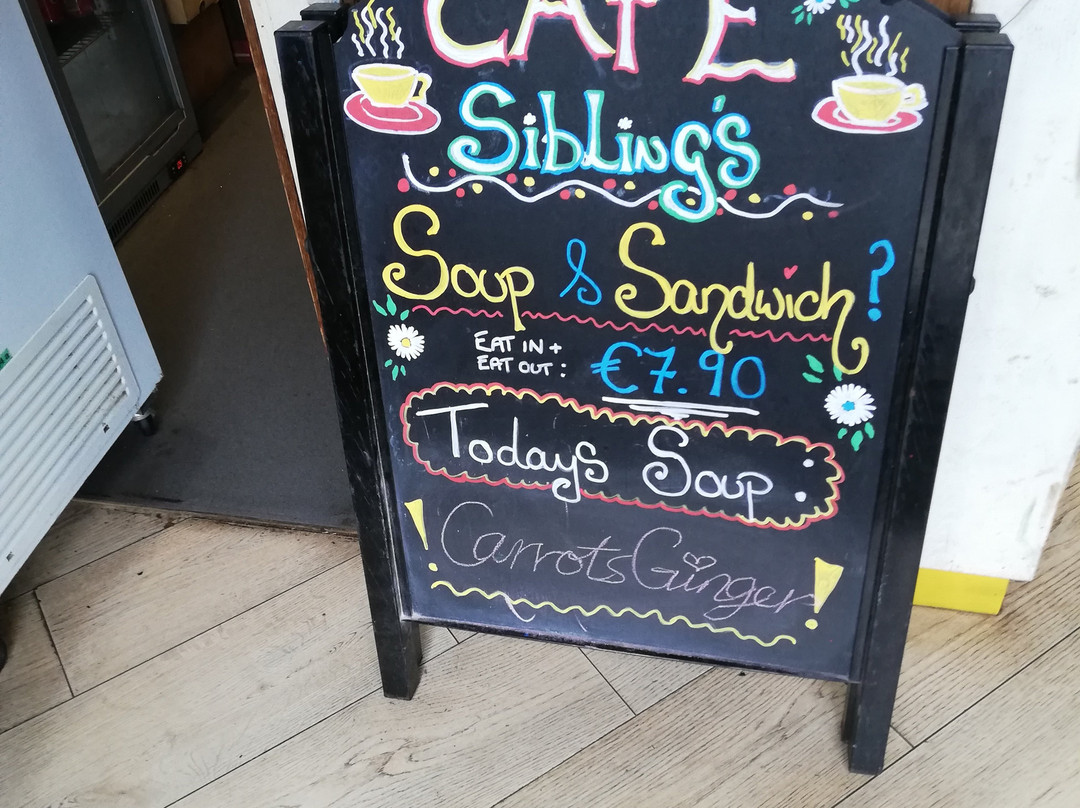 CAFE
SibLing's
Soup & Sandwich?
EAT IN +
EAT OUT: €7.90
Todays Soup:
! Carrots Ginger !